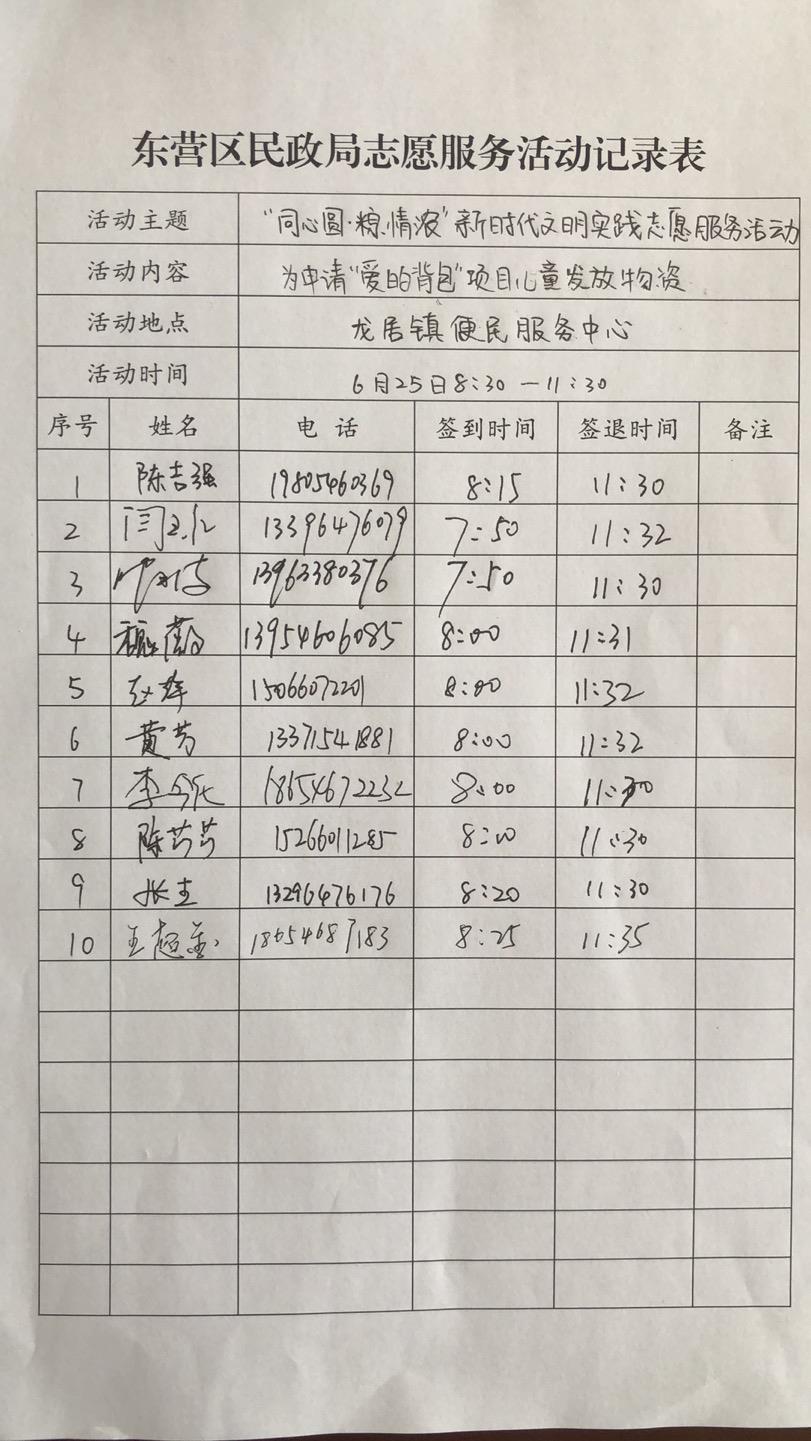 东营区民政局志愿服务活动记录表
活动主题 “同心圆·粽情浓”新时代文明实践志愿服务活动
活动内容 为申请“爱的背包”项目儿童发放物资
活动地点 龙居镇便民服务中心
活动时间 6月25日8:30—11:30
序号 姓名 电话 签到时间 签退时间 备注
1 陈吉强 19805460369 8:15 11:30
2 13396476079 7:50 11:32
3 13963380376 7:50 11:30
4 13954606085 8:00 11:31
5 赵辉 15066072201 8:00 11:32
6 黄芳 13371541881 8:00 11:32
7 18654672232 8:00 11:30
8 陈芳芳 15266011285 8:00 11:30
9 张主 13296476176 8:20 11:30
10 18654687183 8:25 11:35